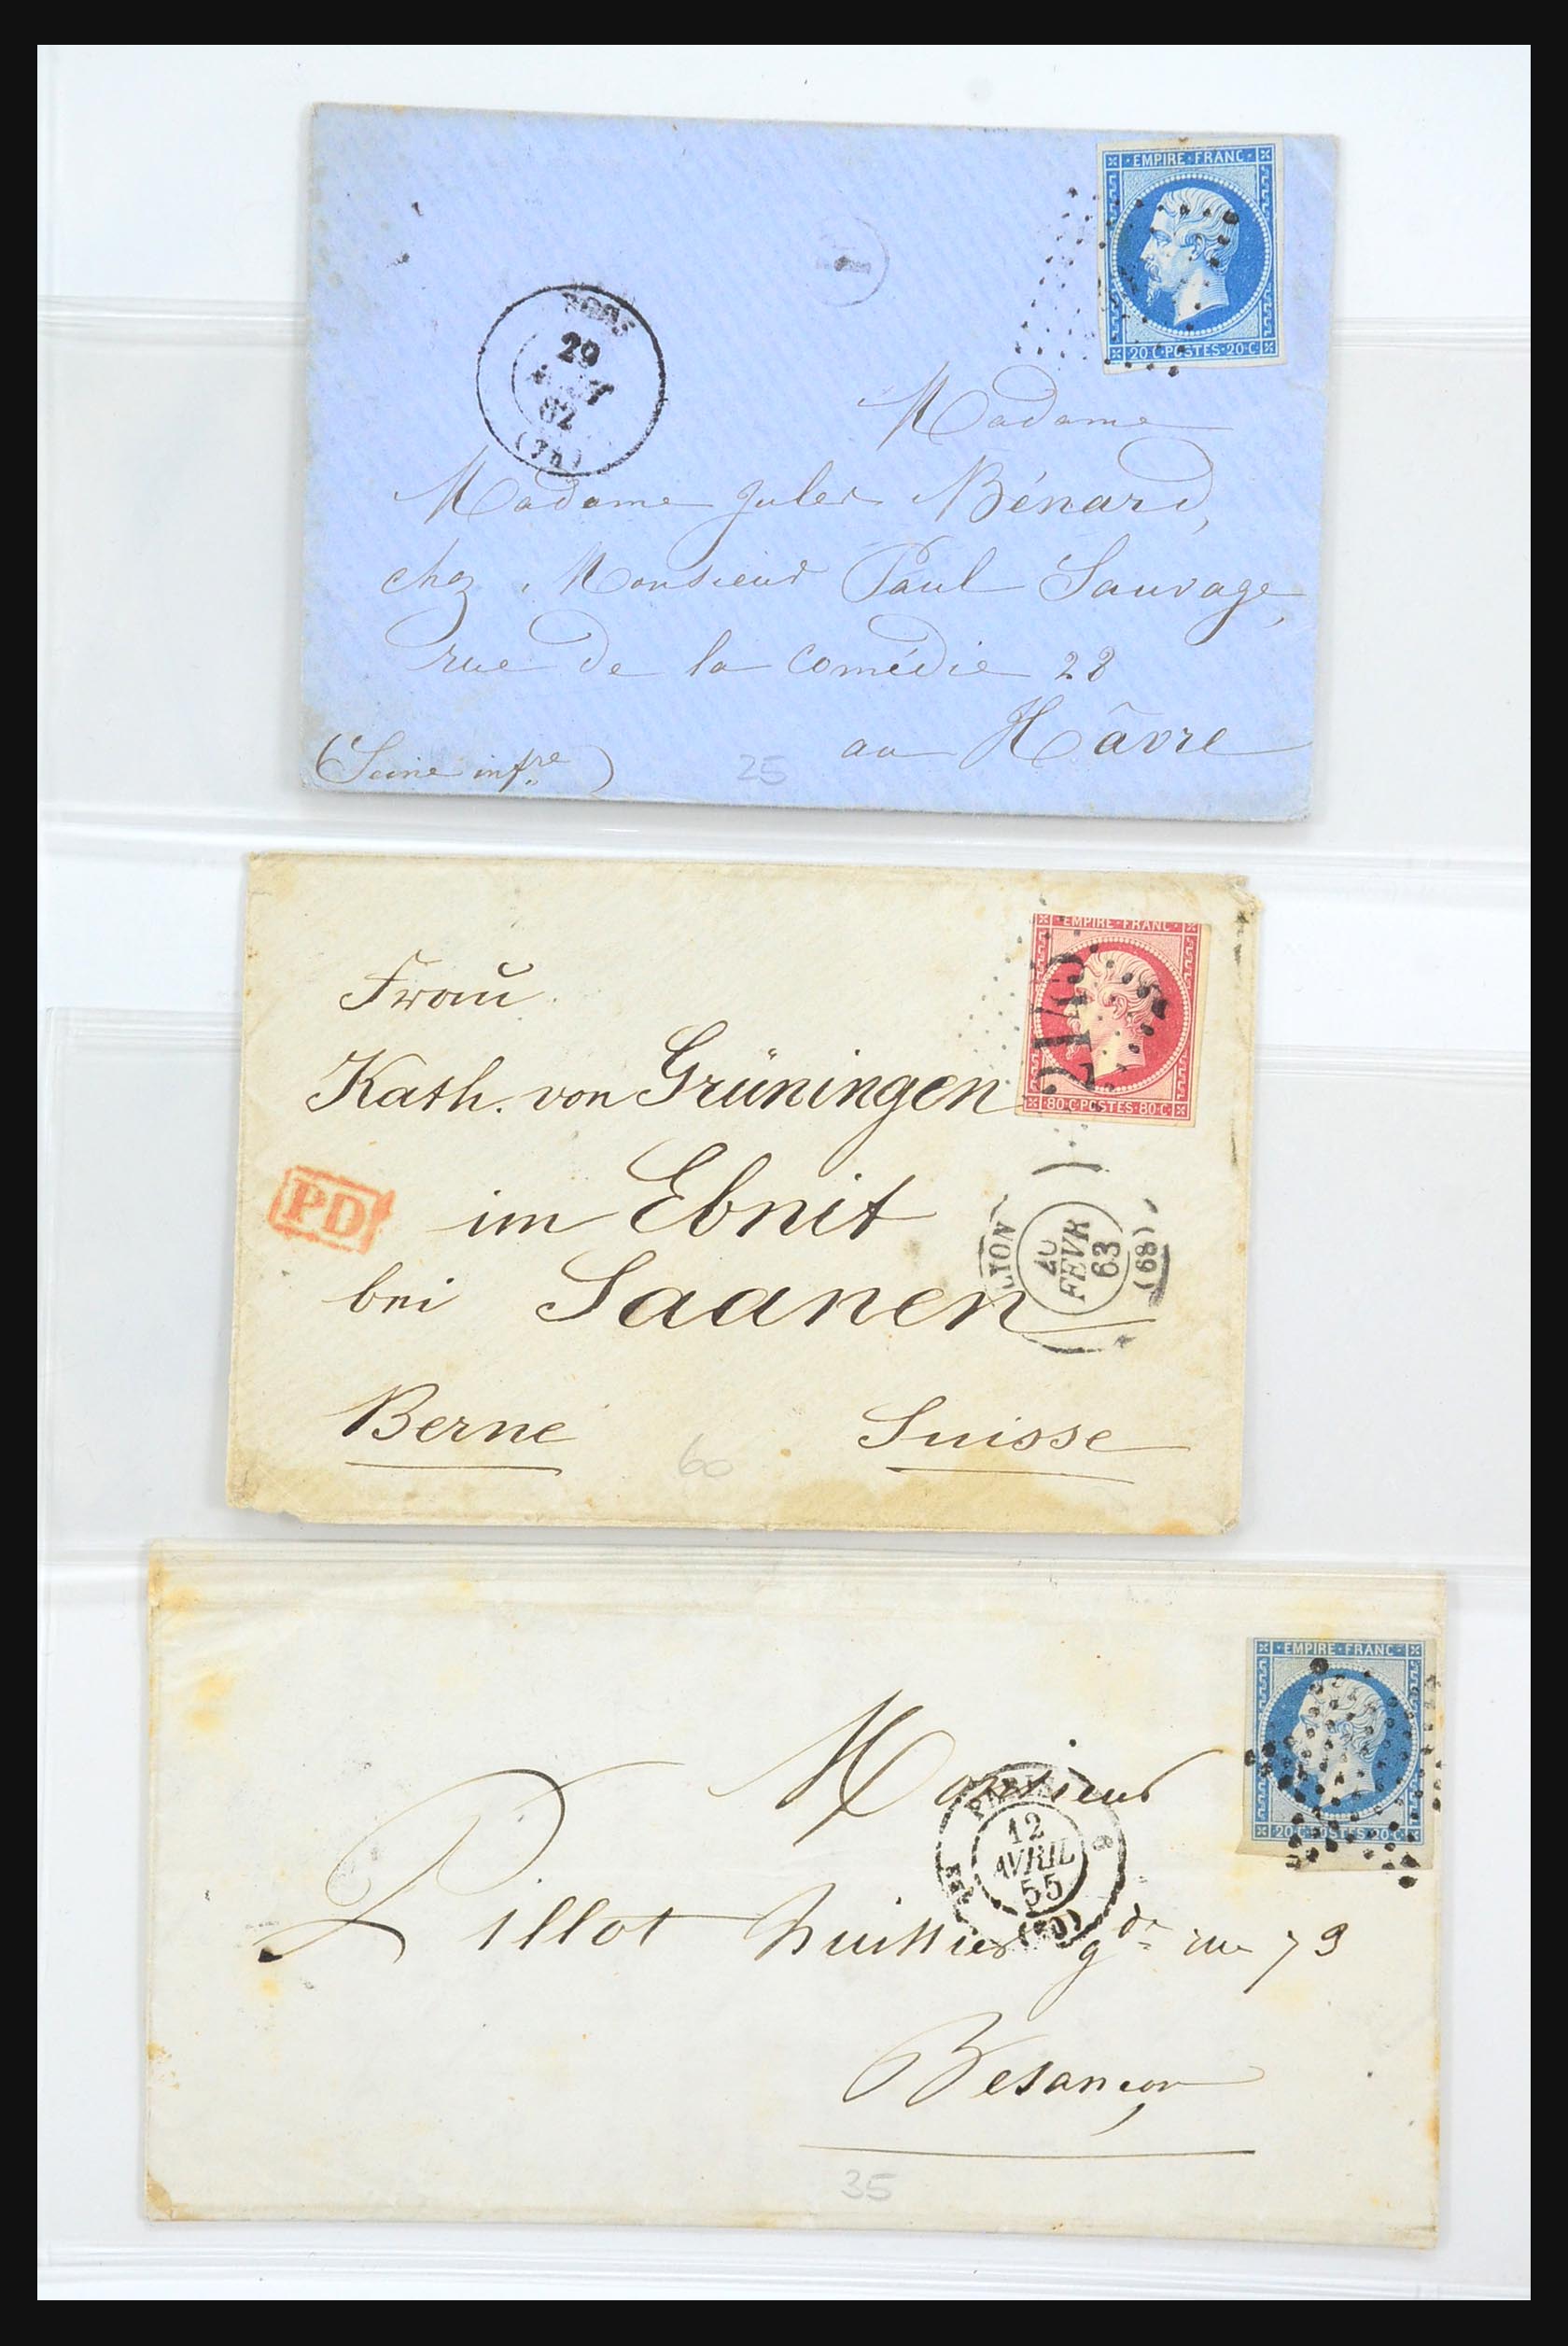 EMPIRE · FRANC ·
20·C·POSTES·20·C
29
62
Madame
Madame Jules Bénard,
chez Monsieur Paul Sauvage,
rue de la Comédie 28
au Hâvre
(Seine infre)
25
EMPIRE · FRANC ·
80·C·POSTES·80·C
Frau
Kath. von Grüningen
im Ebnit
PD
bei Saanen
LYON
20
FEVR
63
(68)
Berne Suisse
60
EMPIRE · FRANC ·
20·C·POSTES·20·C
Monsieur
PARIS
12
AVRIL
55
Pillot huissier gde rue 79
Besançon
35